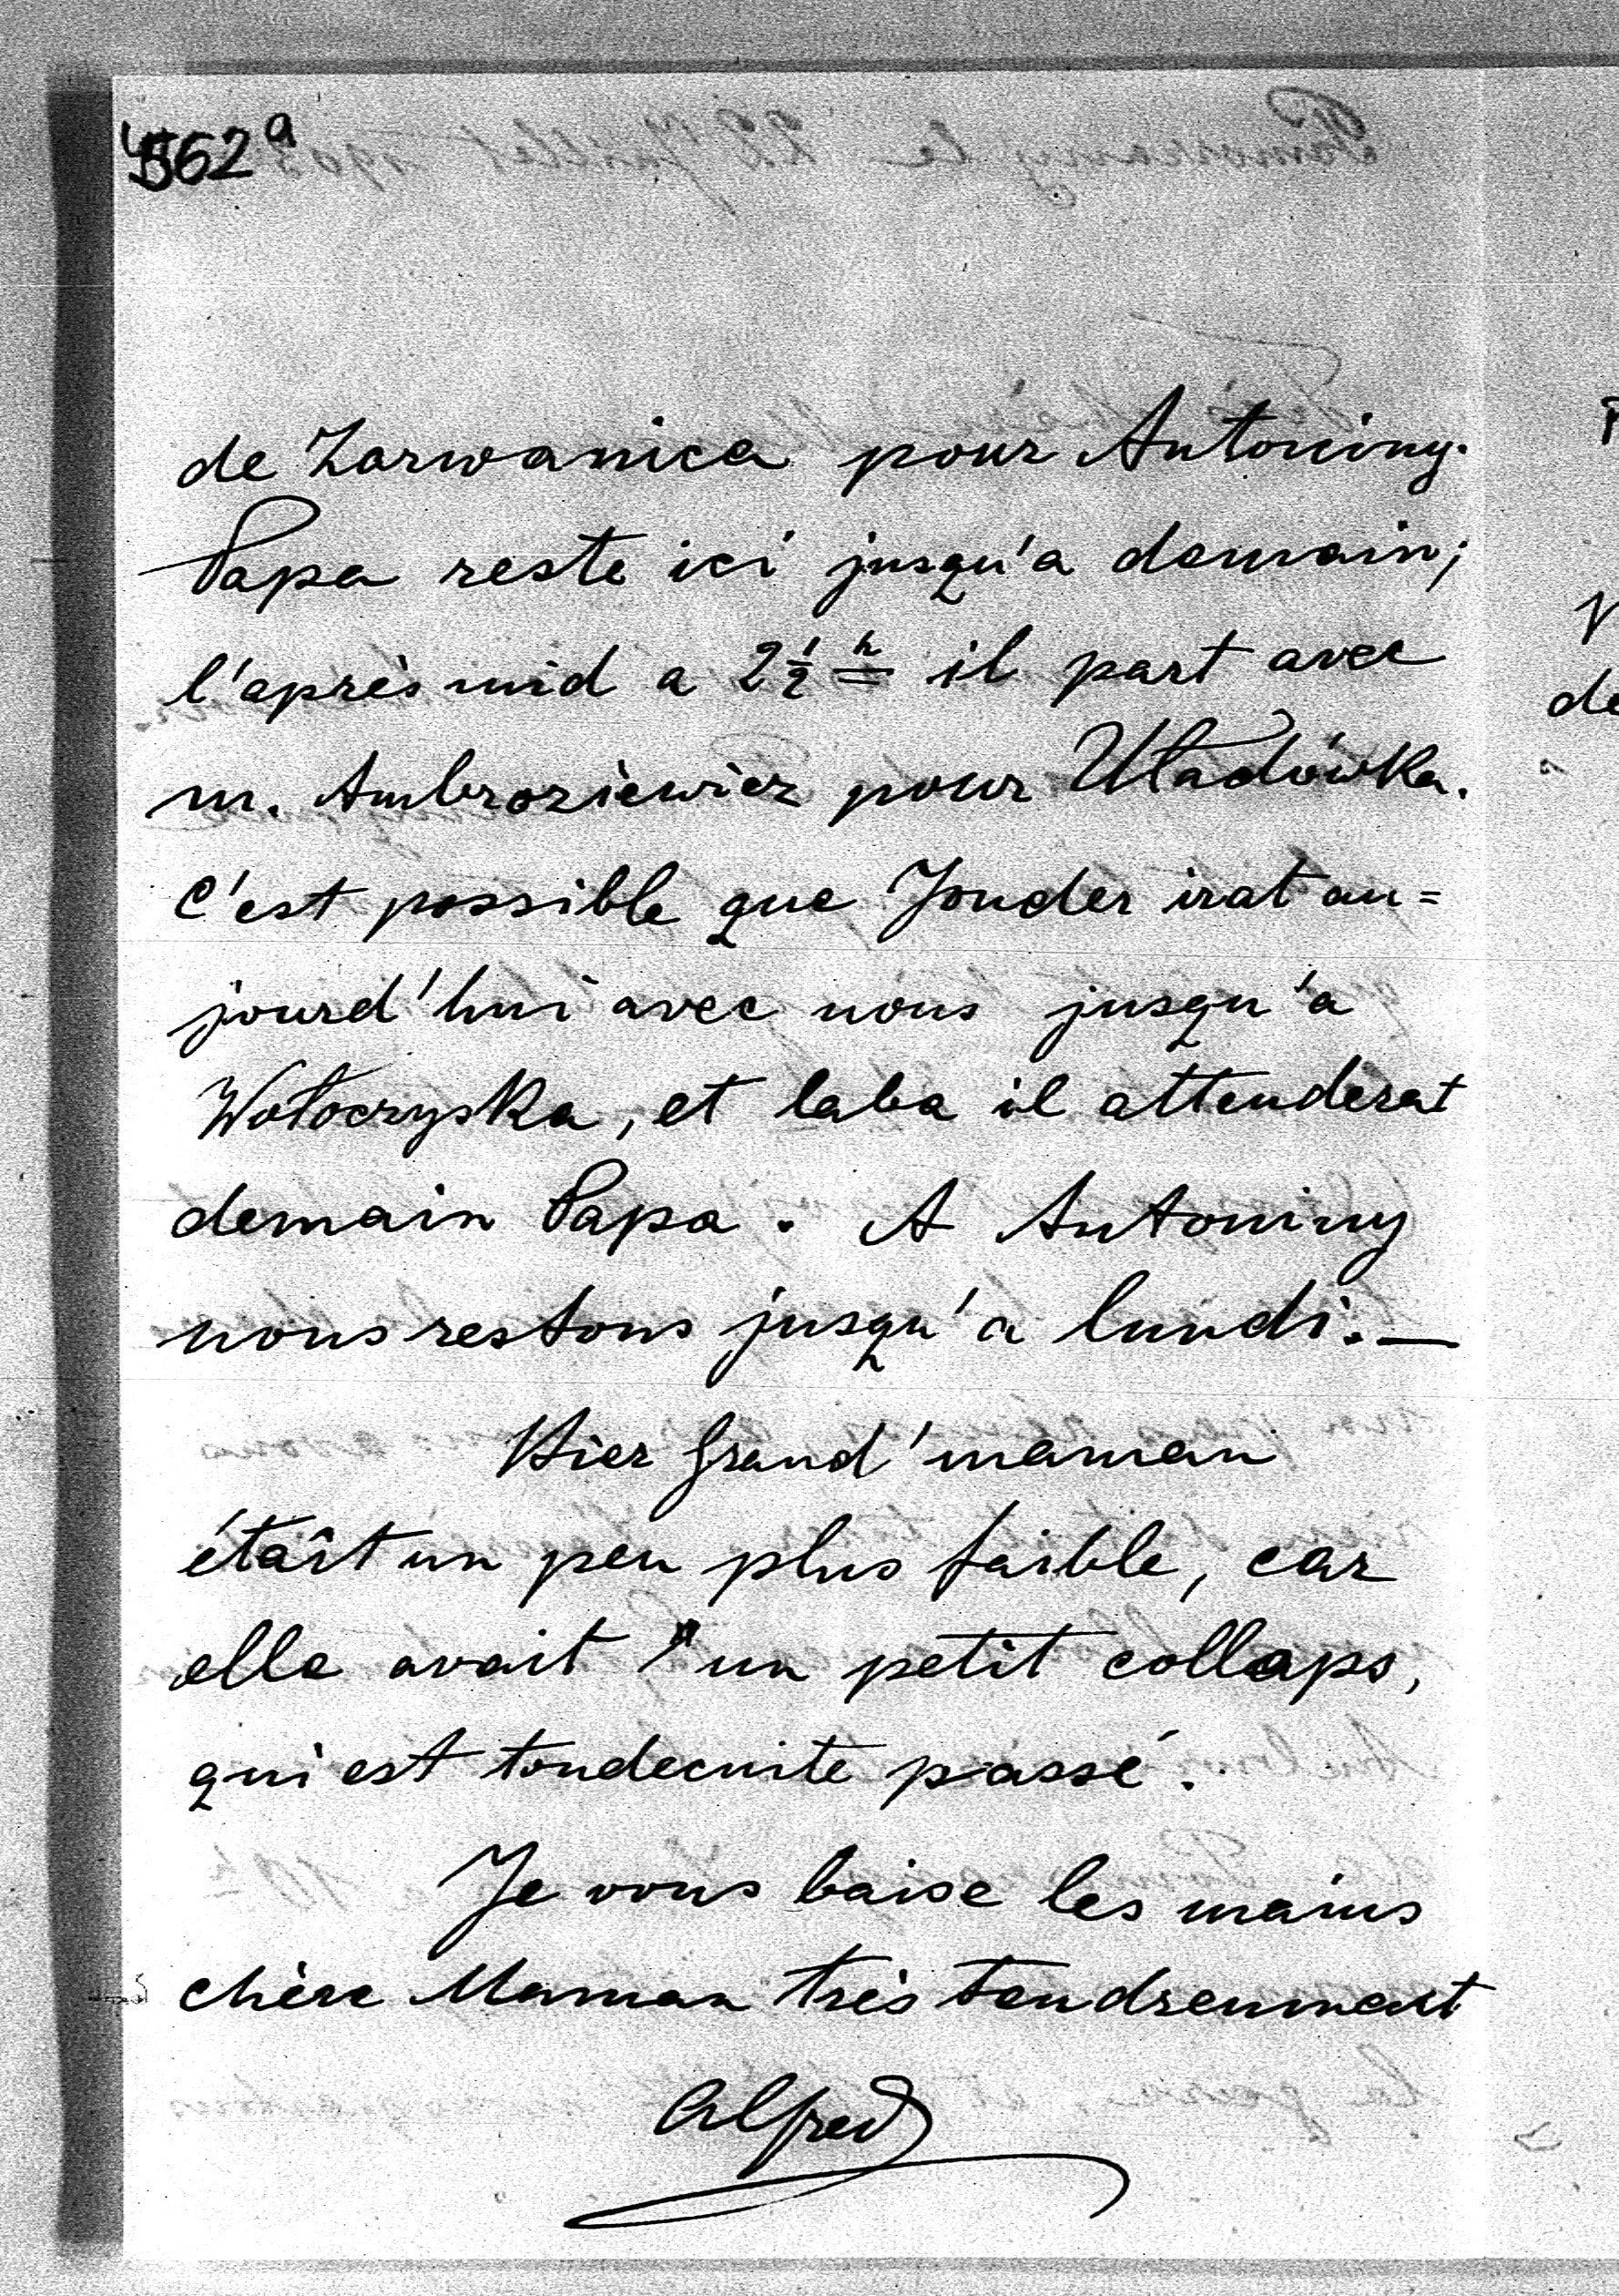 562a
de Zarwanica pour Antoniny.
Papa reste ici jusqu'a demain;
l'après mid a 2½ h il part avec
m. Ambroziewicz pour Uładówka.
C'est possible que Jouder irat au=
jourd'hui avec nous jusqu'a
Wołoczyska, et laba il attenderat
demain Papa. A Antoniny
nous restons jusqu'a lundi.—
Hier Grand'maman
étaît un peu plus faible, car
elle avait un petit collaps,
qui est toudecuite passé.
Je vous baise les mains
chère Maman très tendremment
Alfred